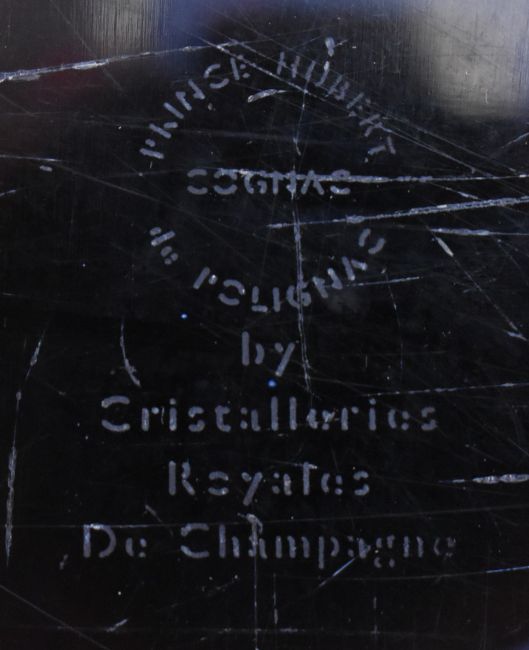 PRINCE HUBERT
COGNAC
de POLIGNAC
by
Cristalleries
Royales
De Champagne